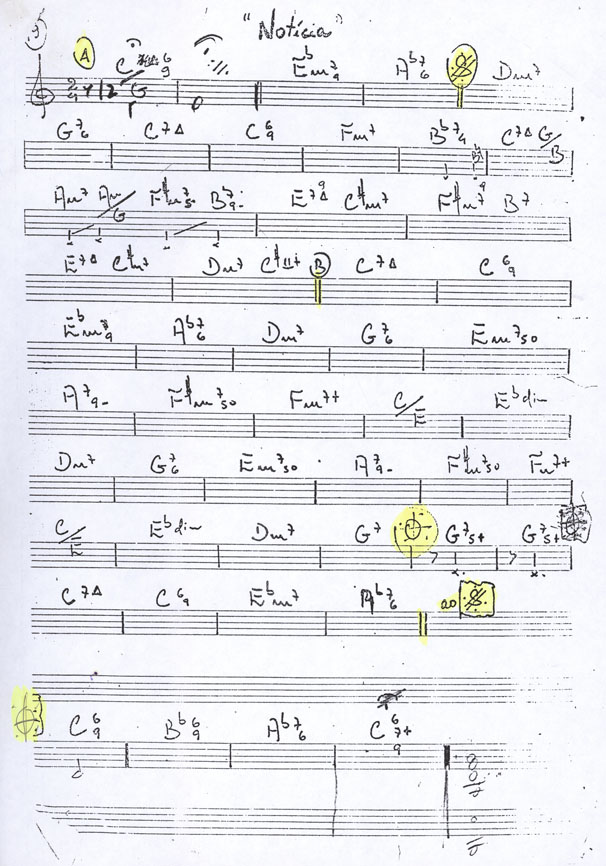 "Notícia"
A C 6/9 G E♭m7/9 A♭7/6 Dm7
G7/6 C7Δ C6/9 Fm7 B♭7/9 C7Δ G/B
Am7 Am/G F#m7 5o B7/9- E7Δ/9 C#m7 F#m7 B7
E7Δ C#m7 Dm7 B C7Δ C6/9
E♭m7/9 A♭7/6 Dm7 G7/6 Em7 5o
A7/9- F#m7 5o Fm7+ C/E E♭dim
Dm7 G7/6 Em7 5o A7/9- F#m7 5o Fm7+
C/E E♭dim Dm7 G7 G7 5+ G7 5+
C7Δ C6/9 E♭m7 A♭7/6 ao
C6/9 B♭6/9 A♭7/6 C6/7+/9